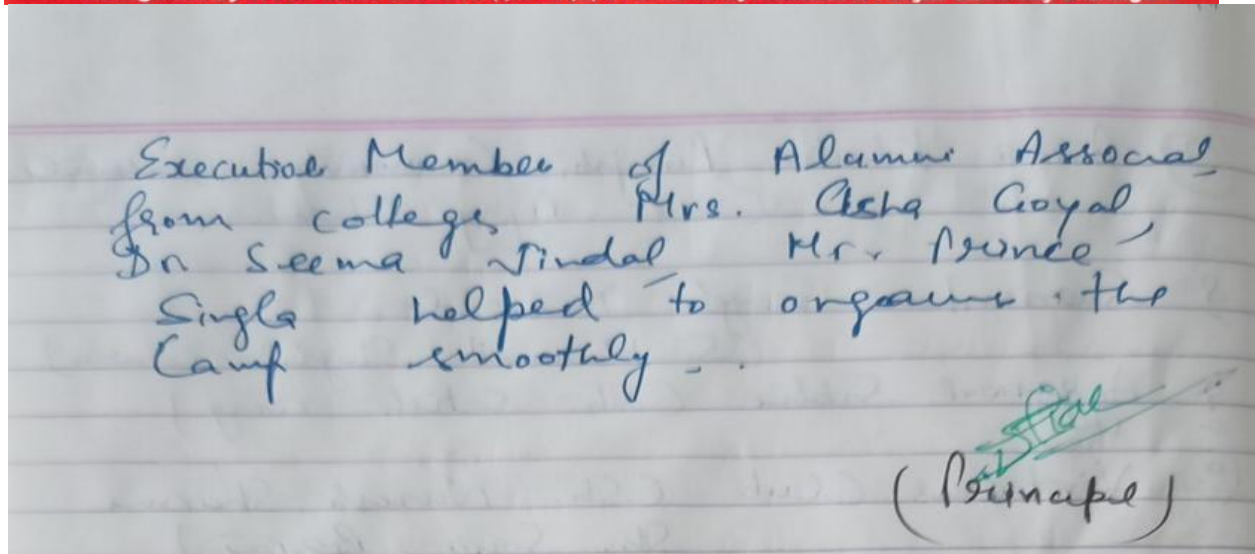 Executive Member of Alumni Associat
from college Mrs. Asha Goyal
Dr Seema Jindal Mr. Prince
Singla helped to organise the
Camp smoothly.
(Principal)